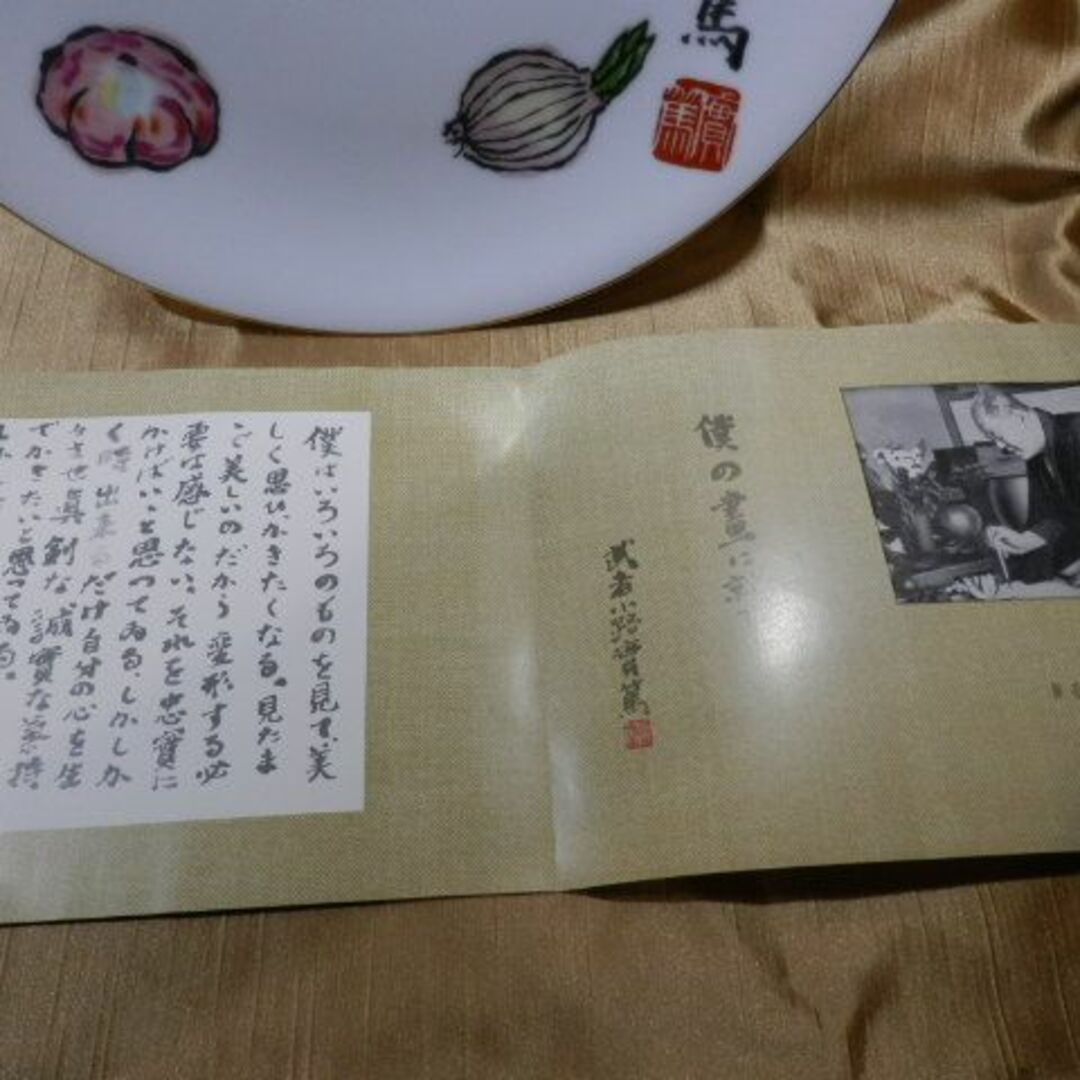 馬
實篤
僕の畫に
武者小路實篤
僕はいろいろのものを見て、美
しく思ひ、かきたくなる。見たま
ご美しいのだから変形する必
要は感じない、それを忠實に
かけばいゝと思つてゐる、しかしか
く時出来るだけ自分の心を生
かさせ眞剣な誠實な氣持
でかきたいと思つてゐる。